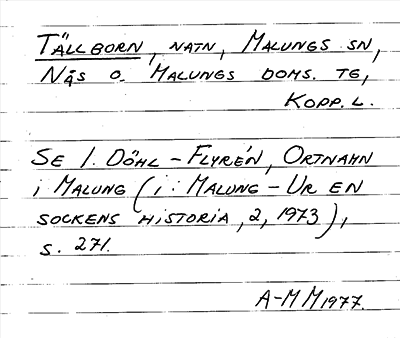 TÄLLBORN, NATN, MALUNGS SN,
NÅS O. MALUNGS DOMS. TG,
KOPP. L.
SE I. DÖHL-FLYRÉN, ORTNAMN
i MALUNG (i: MALUNG-UR EN
SOCKENS HISTORIA, 2, 1973),
S. 271.
A-M M 1977.